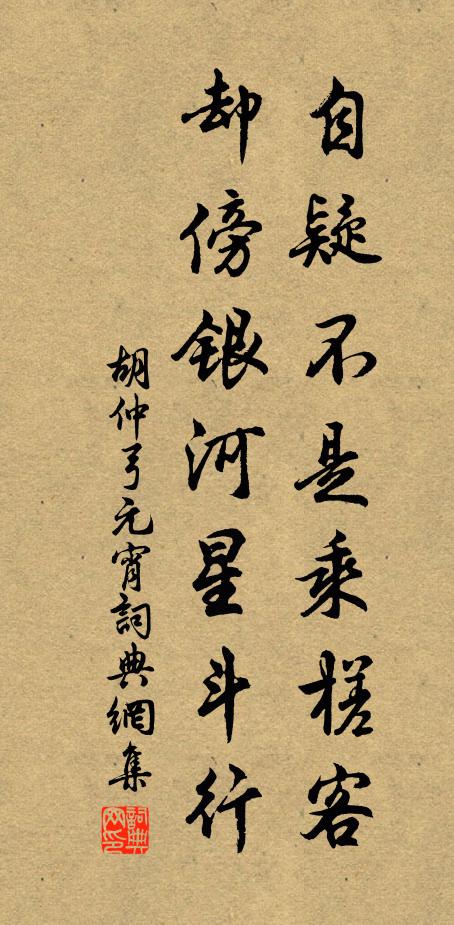 自疑不是乘槎客
却傍銀河星斗行
胡仲弓元宵詞典網集
詞典
网印